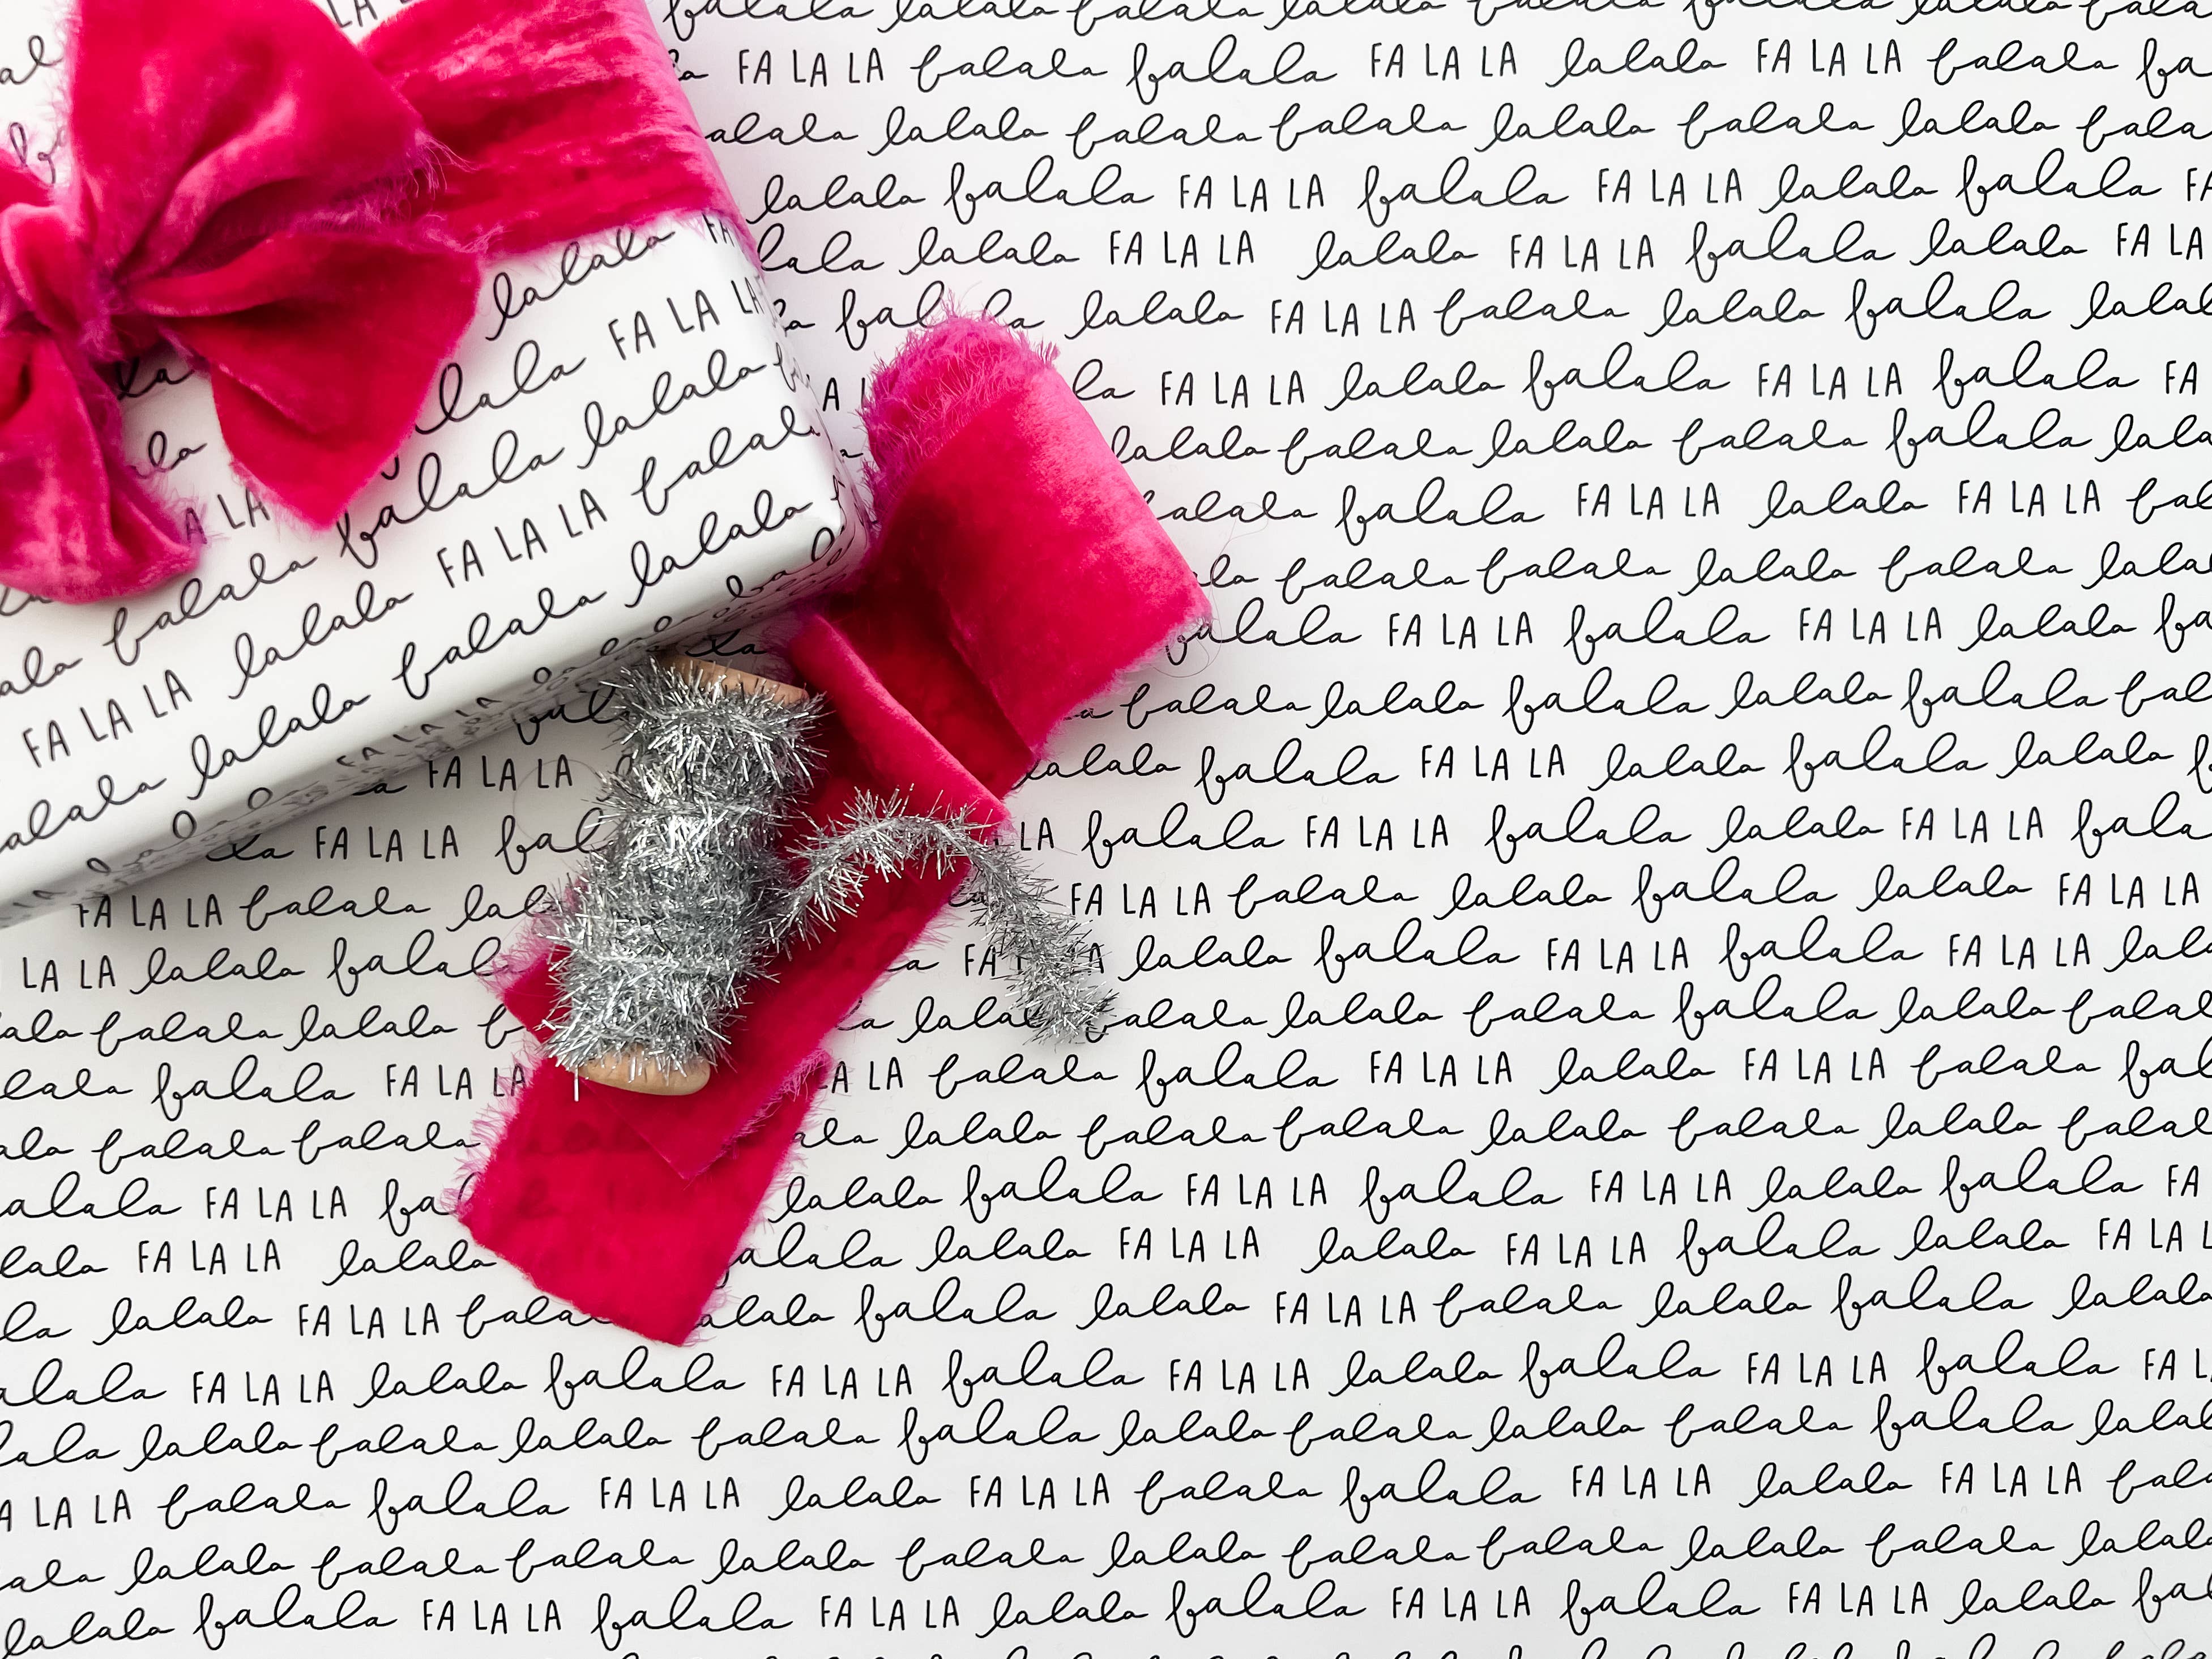 lalala
lalala FA LA LA
falala lalala
falala lalala FA LA LA falala
FA LA LA lalala falala lalala
lalala
falala lalala falala lalala falala falala lalala
FA LA LA falala falala FA LA LA lalala FA LA LA falala
lalala falala falala lalala falala lalala
lalala falala FA LA LA falala FA LA LA lalala falala
lalala FA LA LA lalala FA LA LA falala lalala FA LA
lalala FA LA LA falala lalala falala
FA LA LA lalala falala FA LA LA falala FA
lalala falala lalala falala falala
falala FA LA LA lalala FA LA LA
falala falala lalala falala
falala FA LA LA falala FA LA LA lalala
falala lalala falala lalala falala
FA LA LA lalala falala FA LA LA lalala falala lalala
FA LA LA LA falala FA LA LA falala lalala FA LA LA falala
FA LA LA falala FA LA LA falala lalala falala lalala FA LA LA
LA LA lalala FA lalala falala FA LA LA falala FA LA LA
falala lalala falala lalala falala falala lalala falala
falala FA LA LA LA falala falala FA LA LA lalala FA LA LA falala
falala falala lalala falala falala lalala falala lalala falala
FA LA LA lalala falala FA LA LA falala FA LA LA lalala falala FA
FA LA LA lalala lalala FA LA LA lalala FA LA LA falala lalala FA LA
lalala FA LA LA falala lalala FA LA LA falala lalala falala lalala
FA LA LA lalala falala FA LA LA falala FA LA LA lalala falala FA LA LA falala FA
lalala falala lalala falala falala lalala falala lalala falala falala
LA LA falala falala FA LA LA lalala FA LA LA falala falala FA LA LA lalala FA LA LA
lalala falala falala lalala falala lalala falala falala lalala falala lalala
lalala falala FA LA LA falala FA LA LA lalala falala FA LA LA falala FA LA LA lalala